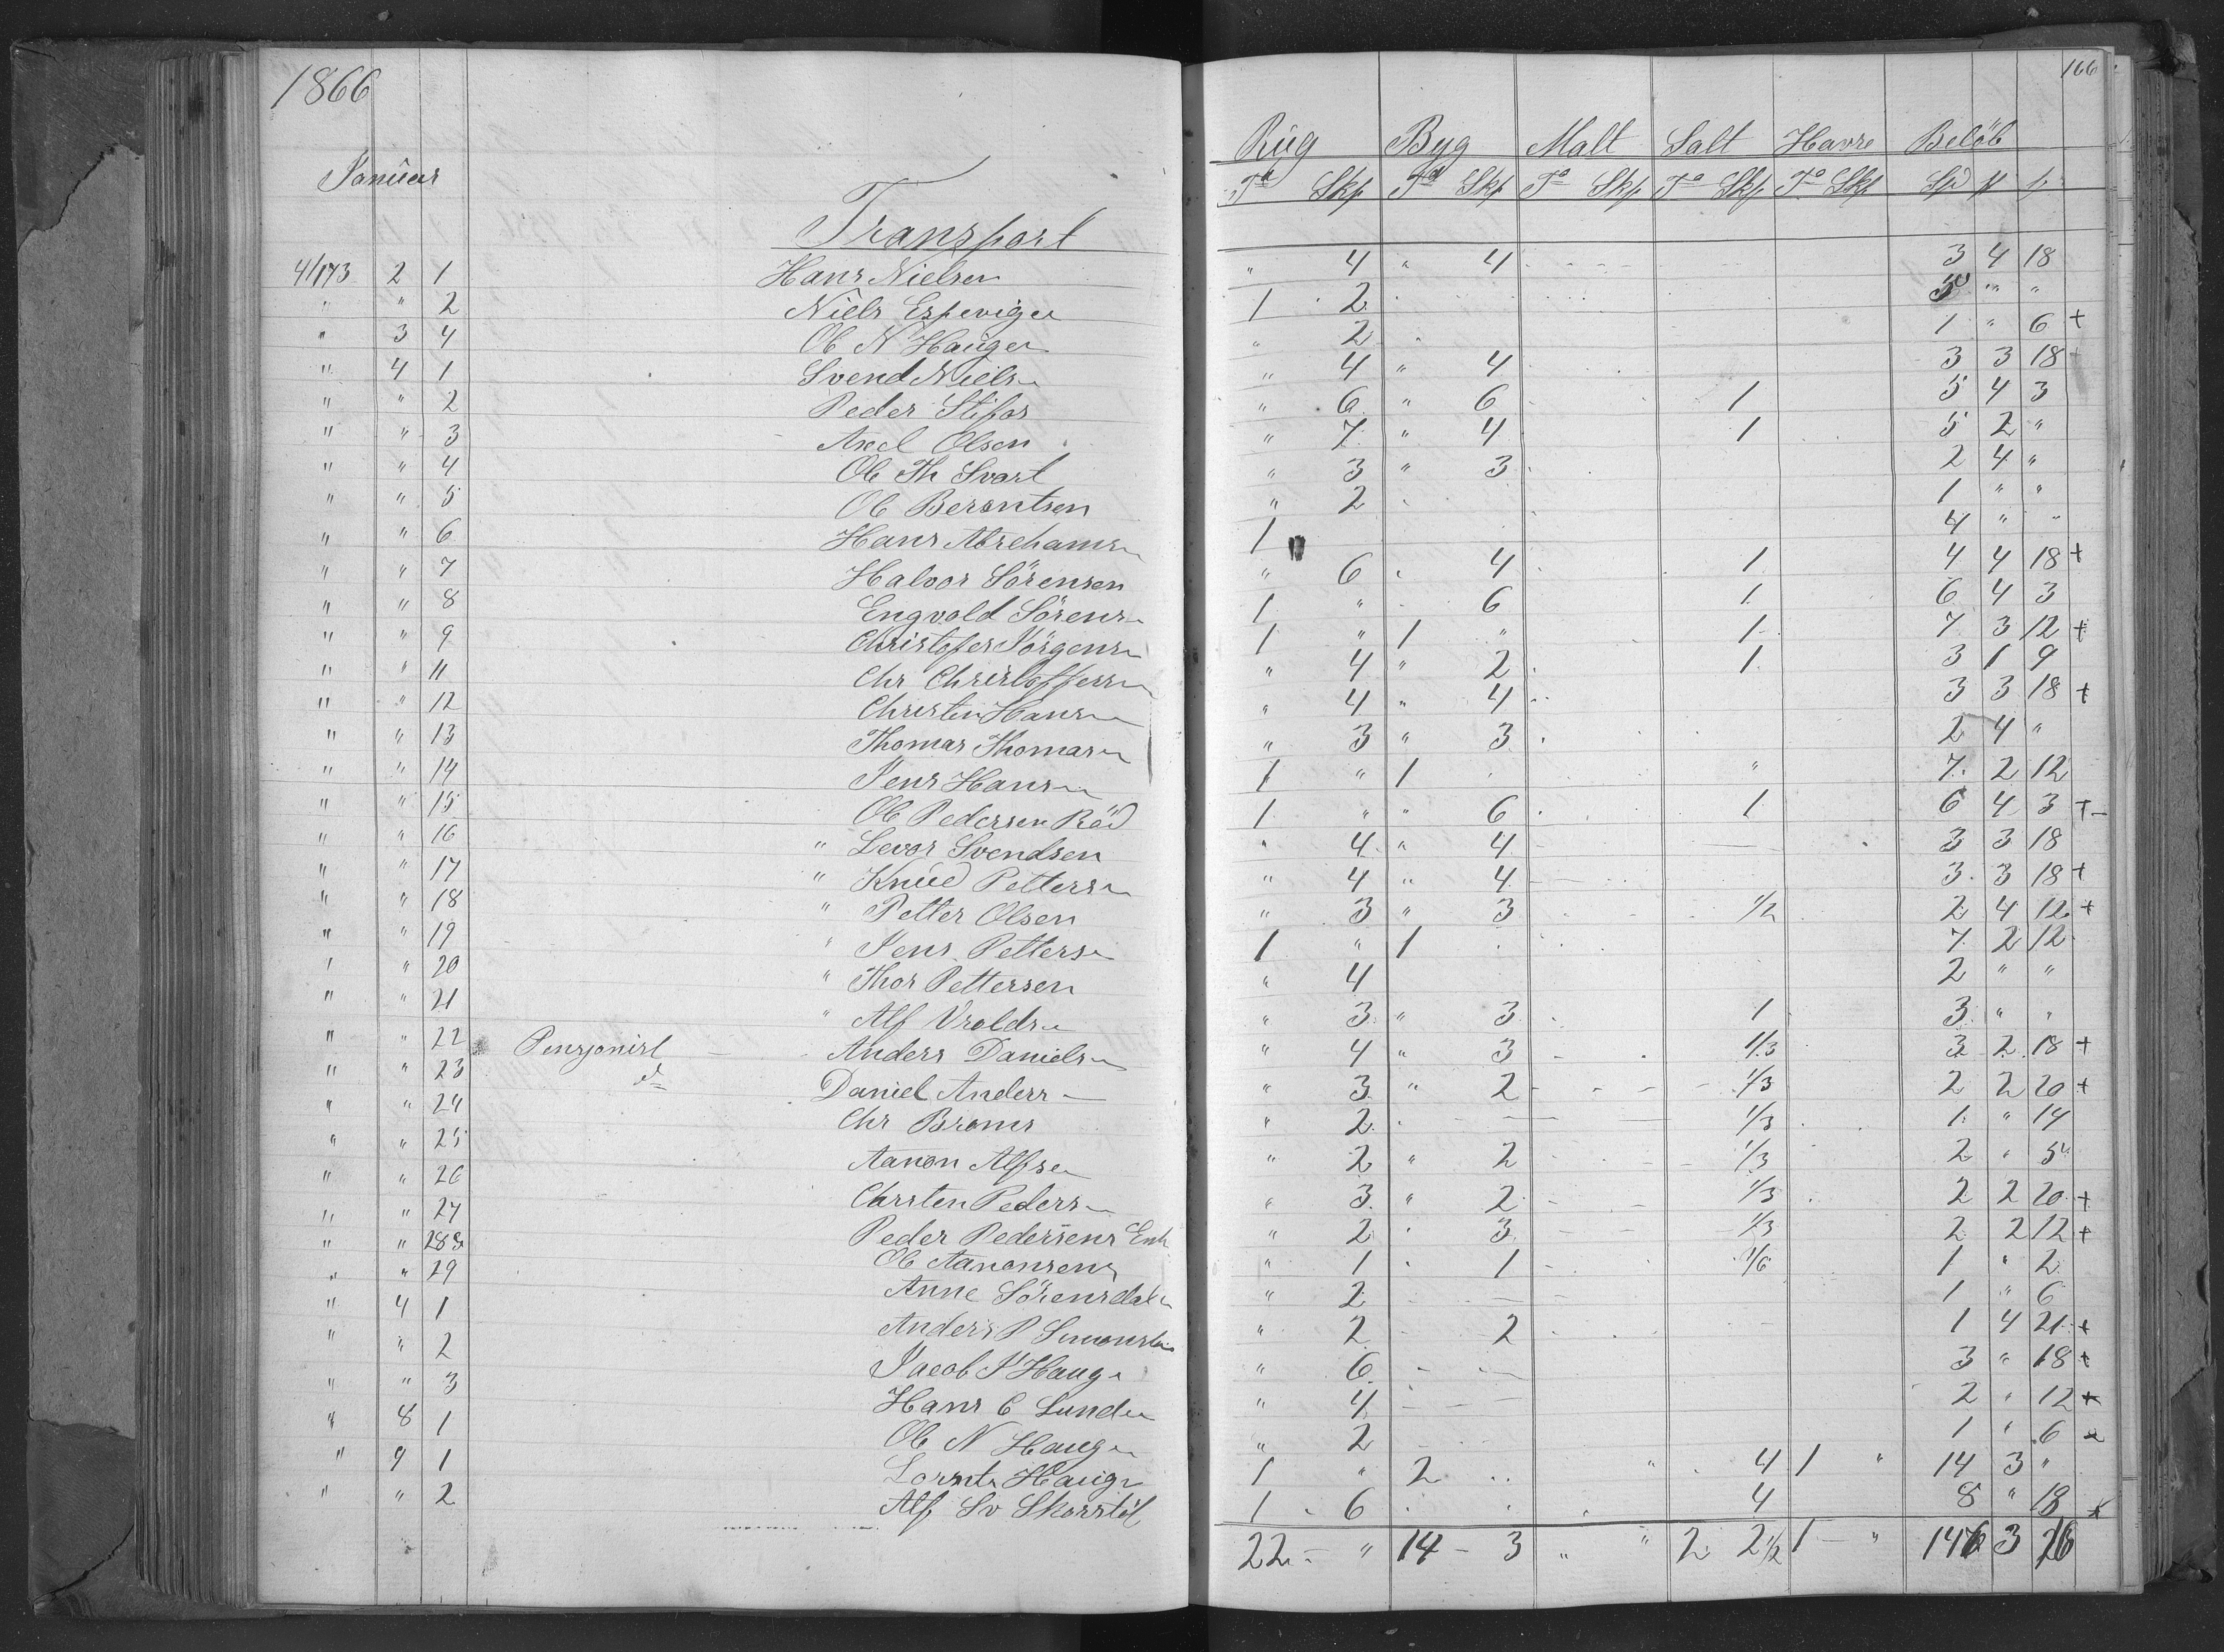 1866
Januar
Transport
4/173 2 1 Hans Nielsen
" " 2 Niels Espeviger
" 3 4 Ole N Haugen
" 4 1 Svend Niels
" " 2 Peder
" " 3 Axel Olsen
" " 4 Ole Th Svart
" " 5 Ole Berentsen
" " 6 Hans Abrehams
" " 7 Halvor Sörensen
" " 8 Engvold Sörens
" " 9 Christofer Jörgens
" " 11 Chr Christoffers
" " 12 Christen Hans
" " 13 Thomas Thomas
" " 14 Jens Hans
" " 15 Ole Pedersen Röd
" " 16 " Levor Svendsen
" " 17 " Knud Petters
" " 18 " Petter Olsen
" " 19 " Jens Petters
" " 20 " Thor Pettersen
" " 21 " Alf Vrolds
" " 22 Pensjonist Anders Daniels
" " 23 d= Daniel Anders
" " 24 Chr Broms
" " 25 Aanon Alfse
" " 26 Carsten Peders
" " 27 Peder Pedersens Enk
" " 28 Ole Aanonsens
" " 29 Anne Sörensdat
" 4 1 Anders P
" " 2 Jacob J Haug
" " 3 Hans C Lunde
" 8 1 Ole N Haug
" 9 1 Haug
" " 2 Alf Sv
166
Rug Byg Malt Salt Havre Belöb
Td Skp Td Skp Td Skp Td Skp Td Skp Spd
" 4 " 4 3 4 18
1 2 5 " "
" 2 1 " 6 +
" 4 " 4 3 3 18 +
" 6 " 6 1 5 4 3
" 7 " 4 1 5 2 "
" 3 " 3 2 4 "
" 2 1 " "
1 4 " "
" 6 4 1 4 4 18 +
1 " 6 1 6 4 3
1 " 1 " 1 7 3 12 +
" 4 " 2 1 3 1 9
" 4 " 4 3 3 18 +
" 3 " 3 2 4 "
1 " 1 " 7 2 12
1 " " 6 1 6 4 3 +
" 4 " 4 3 3 18
" 4 " 4 3 3 18 +
" 3 " 3 1/2 2 4 12 +
1 " 1 7 2 12
" 4 2 " "
" 3 " 3 1 3 " "
" 4 " 3 1/3 3 2 18 +
" 3 " 2 1/3 2 2 20 +
" 2 1/3 1 " 14
" 2 " 2 1/3 2 " 5
" 3 " 2 1/3 2 2 20 +
" 2 3 1/3 2 2 12 +
" 1 1 1/6 1 " 2
" 2 1 " 6
" 2 2 1 4 21 +
" 6 3 " 18 +
" 4 2 " 12 +
" 2 1 " 6
1 " 2 " 4 1 " 14 3 "
1 6 4 8 " 18
22 " 14 3 " " 2 2 1/2 1 " 146 3 16